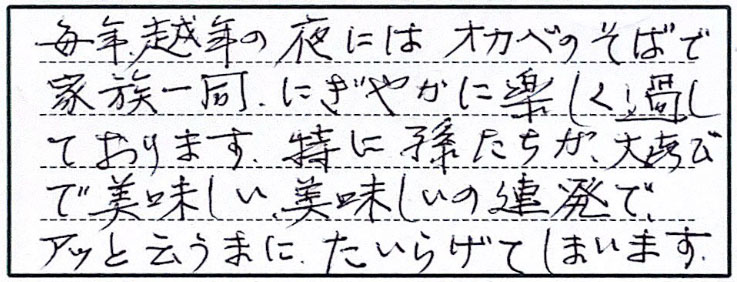 毎年、越年の夜には オカベのそばで
家族一同、にぎやかに楽しく過し
ております、特に孫たちが、大喜び
で美味しい、美味しいの連発で、
アッと云うまに、たいらげてしまいます。